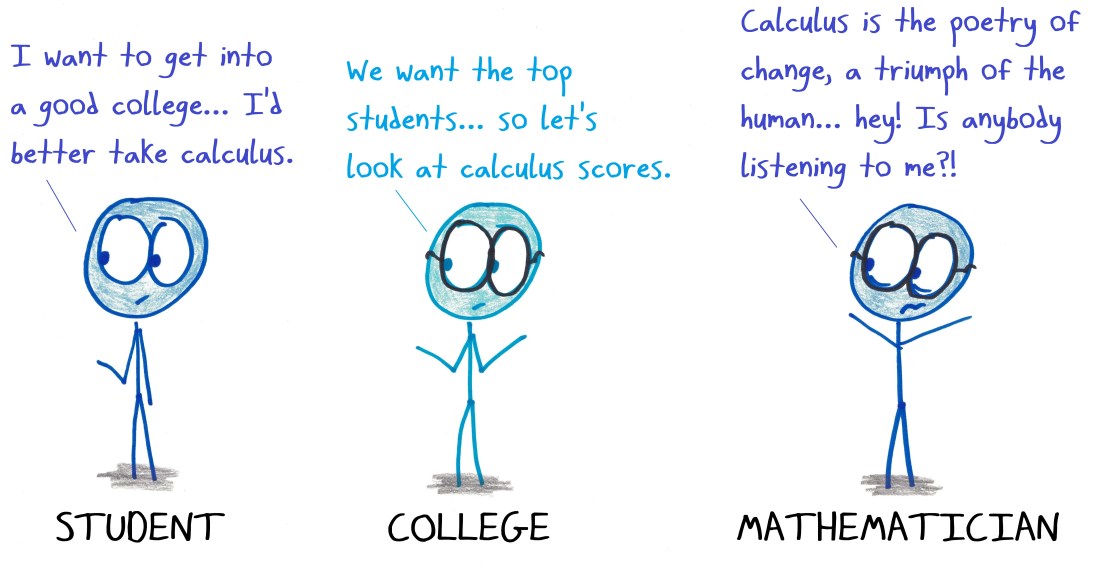 I want to get into
a good college... I'd
better take calculus.
We want the top
students... so let's
look at calculus scores.
Calculus is the poetry of
change, a triumph of the
human... hey! Is anybody
listening to me?!
STUDENT
COLLEGE
MATHEMATICIAN